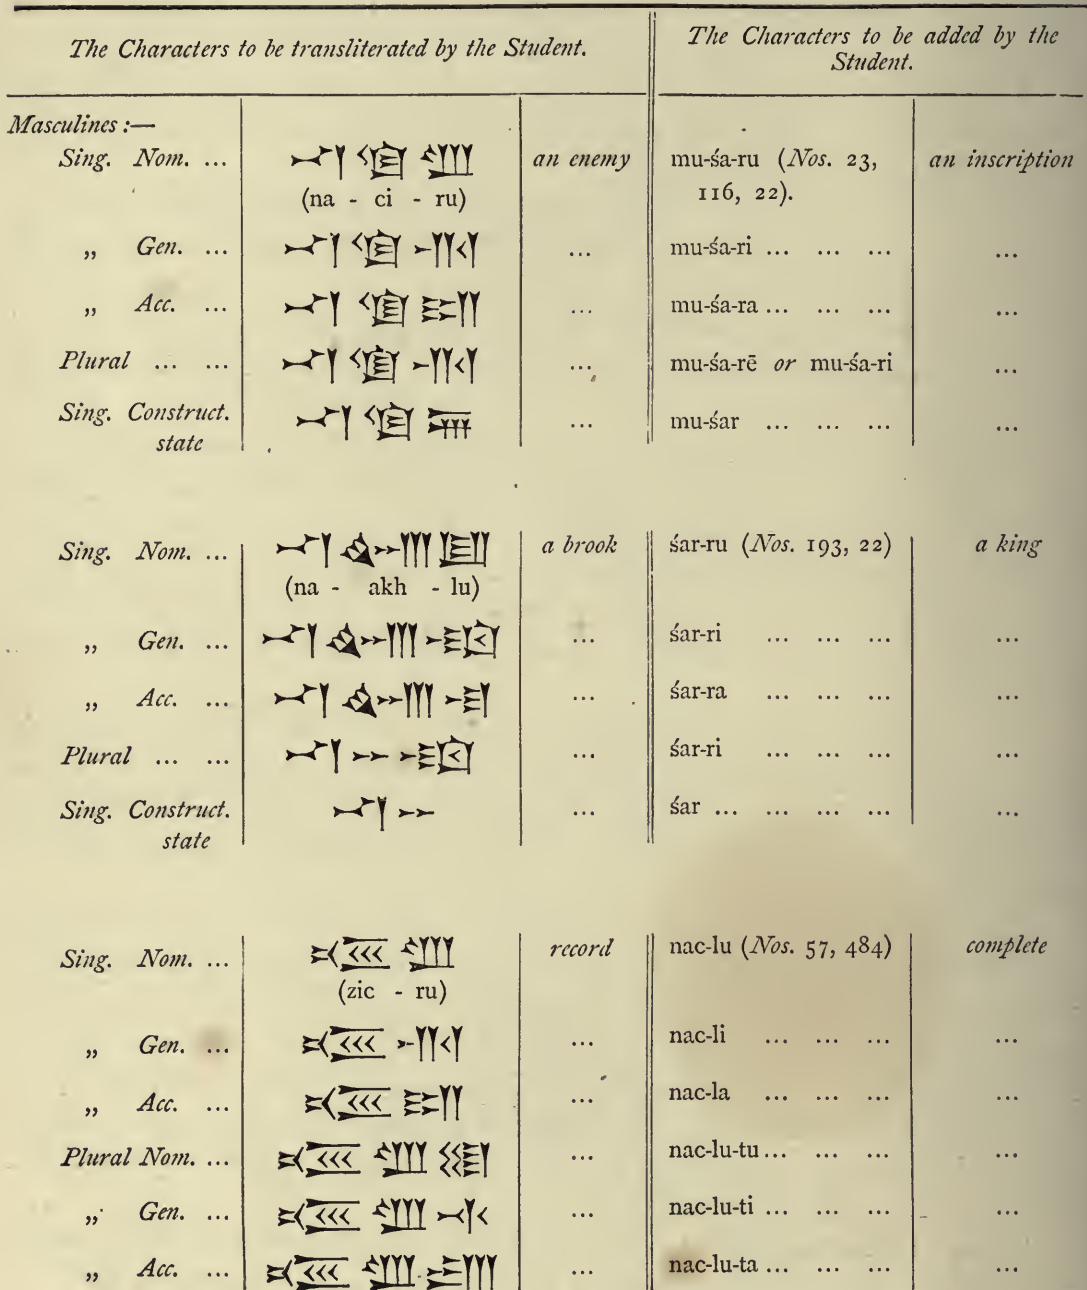 The Characters to be transliterated by the Student.
The Characters to be added by the
Student.
Masculines :—
Sing. Nom. ... 𒈾 𒆠 𒊒 an enemy mu-śa-ru (Nos. 23,
(na - ci - ru) 116, 22). an inscription
„ Gen. ... 𒈾 𒆠 𒊑 ... mu-śa-ri ... ... ... ...
„ Acc. ... 𒈾 𒆠 𒊏 ... mu-śa-ra ... ... ... ...
Plural ... ... 𒈾 𒆠 𒊑 ... mu-śa-rē or mu-śa-ri ...
Sing. Construct. 𒈾 𒆠 𒅕 ... mu-śar ... ... ... ...
state
Sing. Nom. ... 𒈾 𒄴 𒇻 a brook śar-ru (Nos. 193, 22) a king
(na - akh - lu)
„ Gen. ... 𒈾 𒄴 𒇷 ... śar-ri ... ... ... ...
„ Acc. ... 𒈾 𒄴 𒆷 ... śar-ra ... ... ... ...
Plural ... ... 𒈾 𒄬 𒇷 ... śar-ri ... ... ... ...
Sing. Construct. 𒈾 𒄬 ... śar ... ... ... ... ...
state
Sing. Nom. ... 𒊒 record nac-lu (Nos. 57, 484) complete
(zic - ru)
„ Gen. ... 𒊑 ... nac-li ... ... ... ...
„ Acc. ... 𒊏 ... nac-la ... ... ... ...
Plural Nom. ... 𒊒 𒌅 ... nac-lu-tu ... ... ... ...
„ Gen. ... 𒊒 𒋾 ... nac-lu-ti ... ... ... ...
„ Acc. ... 𒊒 𒋫 ... nac-lu-ta ... ... ... ...